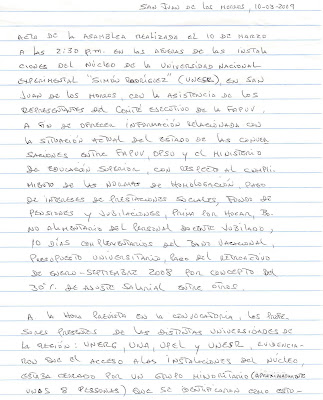 SAN JUAN DE LOS MORROS, 10-03-2009
ACTA DE LA ASAMBLEA REALIZADA EL 10 DE MARZO
A LAS 2:30 P.M. EN LAS AFUERAS DE LAS INSTALA
CIONES DEL NÚCLEO DE LA UNIVERSIDAD NACIONAL
EXPERIMENTAL "SIMÓN RODRÍGUEZ" (UNESR), EN SAN
JUAN DE LOS MORROS, CON LA ASISTENCIA DE LOS
REPRESENTANTES DEL COMITÉ EJECUTIVO DE LA FAPUV,
A FIN DE OFRECER INFORMACIÓN RELACIONADA CON
LA SITUACIÓN ACTUAL DEL ESTADO DE LAS CONVER
SACIONES ENTRE FAPUV, OPSU Y EL MINISTERIO
DE EDUCACIÓN SUPERIOR, CON RESPECTO AL CUMPLI
MIENTO DE LAS NORMAS DE HOMOLOGACIÓN, PAGO
DE INTERESES DE PRESTACIONES SOCIALES, FONDO DE
PENSIONES Y JUBILACIONES, PRIMA POR HOGAR, BO
NO ALIMENTARIO DEL PERSONAL DOCENTE JUBILADO,
10 DÍAS COMPLEMENTARIOS DEL BONO VACACIONAL,
PRESUPUESTO UNIVERSITARIO, PAGO DEL RETROACTIVO
DE ENERO-SEPTIEMBRE 2008 POR CONCEPTO DEL
30% DE AJUSTE SALARIAL ENTRE OTROS.
A LA HORA PREVISTA EN LA CONVOCATORIA, LOS PROFE
SORES PRESENTES DE LAS DISTINTAS UNIVERSIDADES DE
LA REGIÓN: UNERG, UNA, UPEL Y UNESR, EVIDENCIA-
RON QUE EL ACCESO A LAS INSTALACIONES DEL NÚCLEO,
ESTABA CERRADO POR UN GRUPO MINORITARIO (APROXIMADAMENTE
UNAS 8 PERSONAS) QUE SE IDENTIFICARON COMO ESTU-